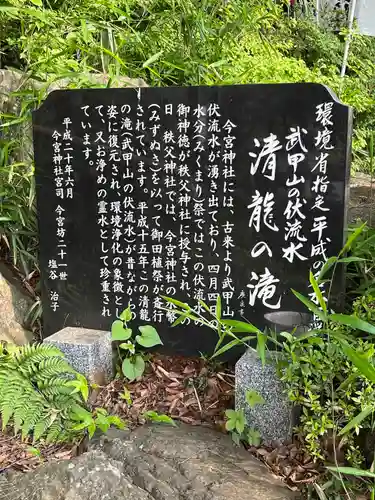 環境省指定 平成の
武甲山の伏流水
清龍の滝
今宮神社には、古来より武甲山の
伏流水が湧き出ており、四月四日の
水分(みくまり)祭ではこの伏流水の
御神徳が秩父神社に授与され、
日 秩父神社では、今宮神社の
(みずぬさ)をまつって御田植祭が斎行
されています。平成十五年この清龍
の滝(武甲山の伏流水)が昔ながらの
姿に復元され、環境浄化の象徴とし
て、又お浄めの霊水として珍重され
ています。
平成二十年六月
今宮神社宮司 今宮坊二十一世
塩谷 治子